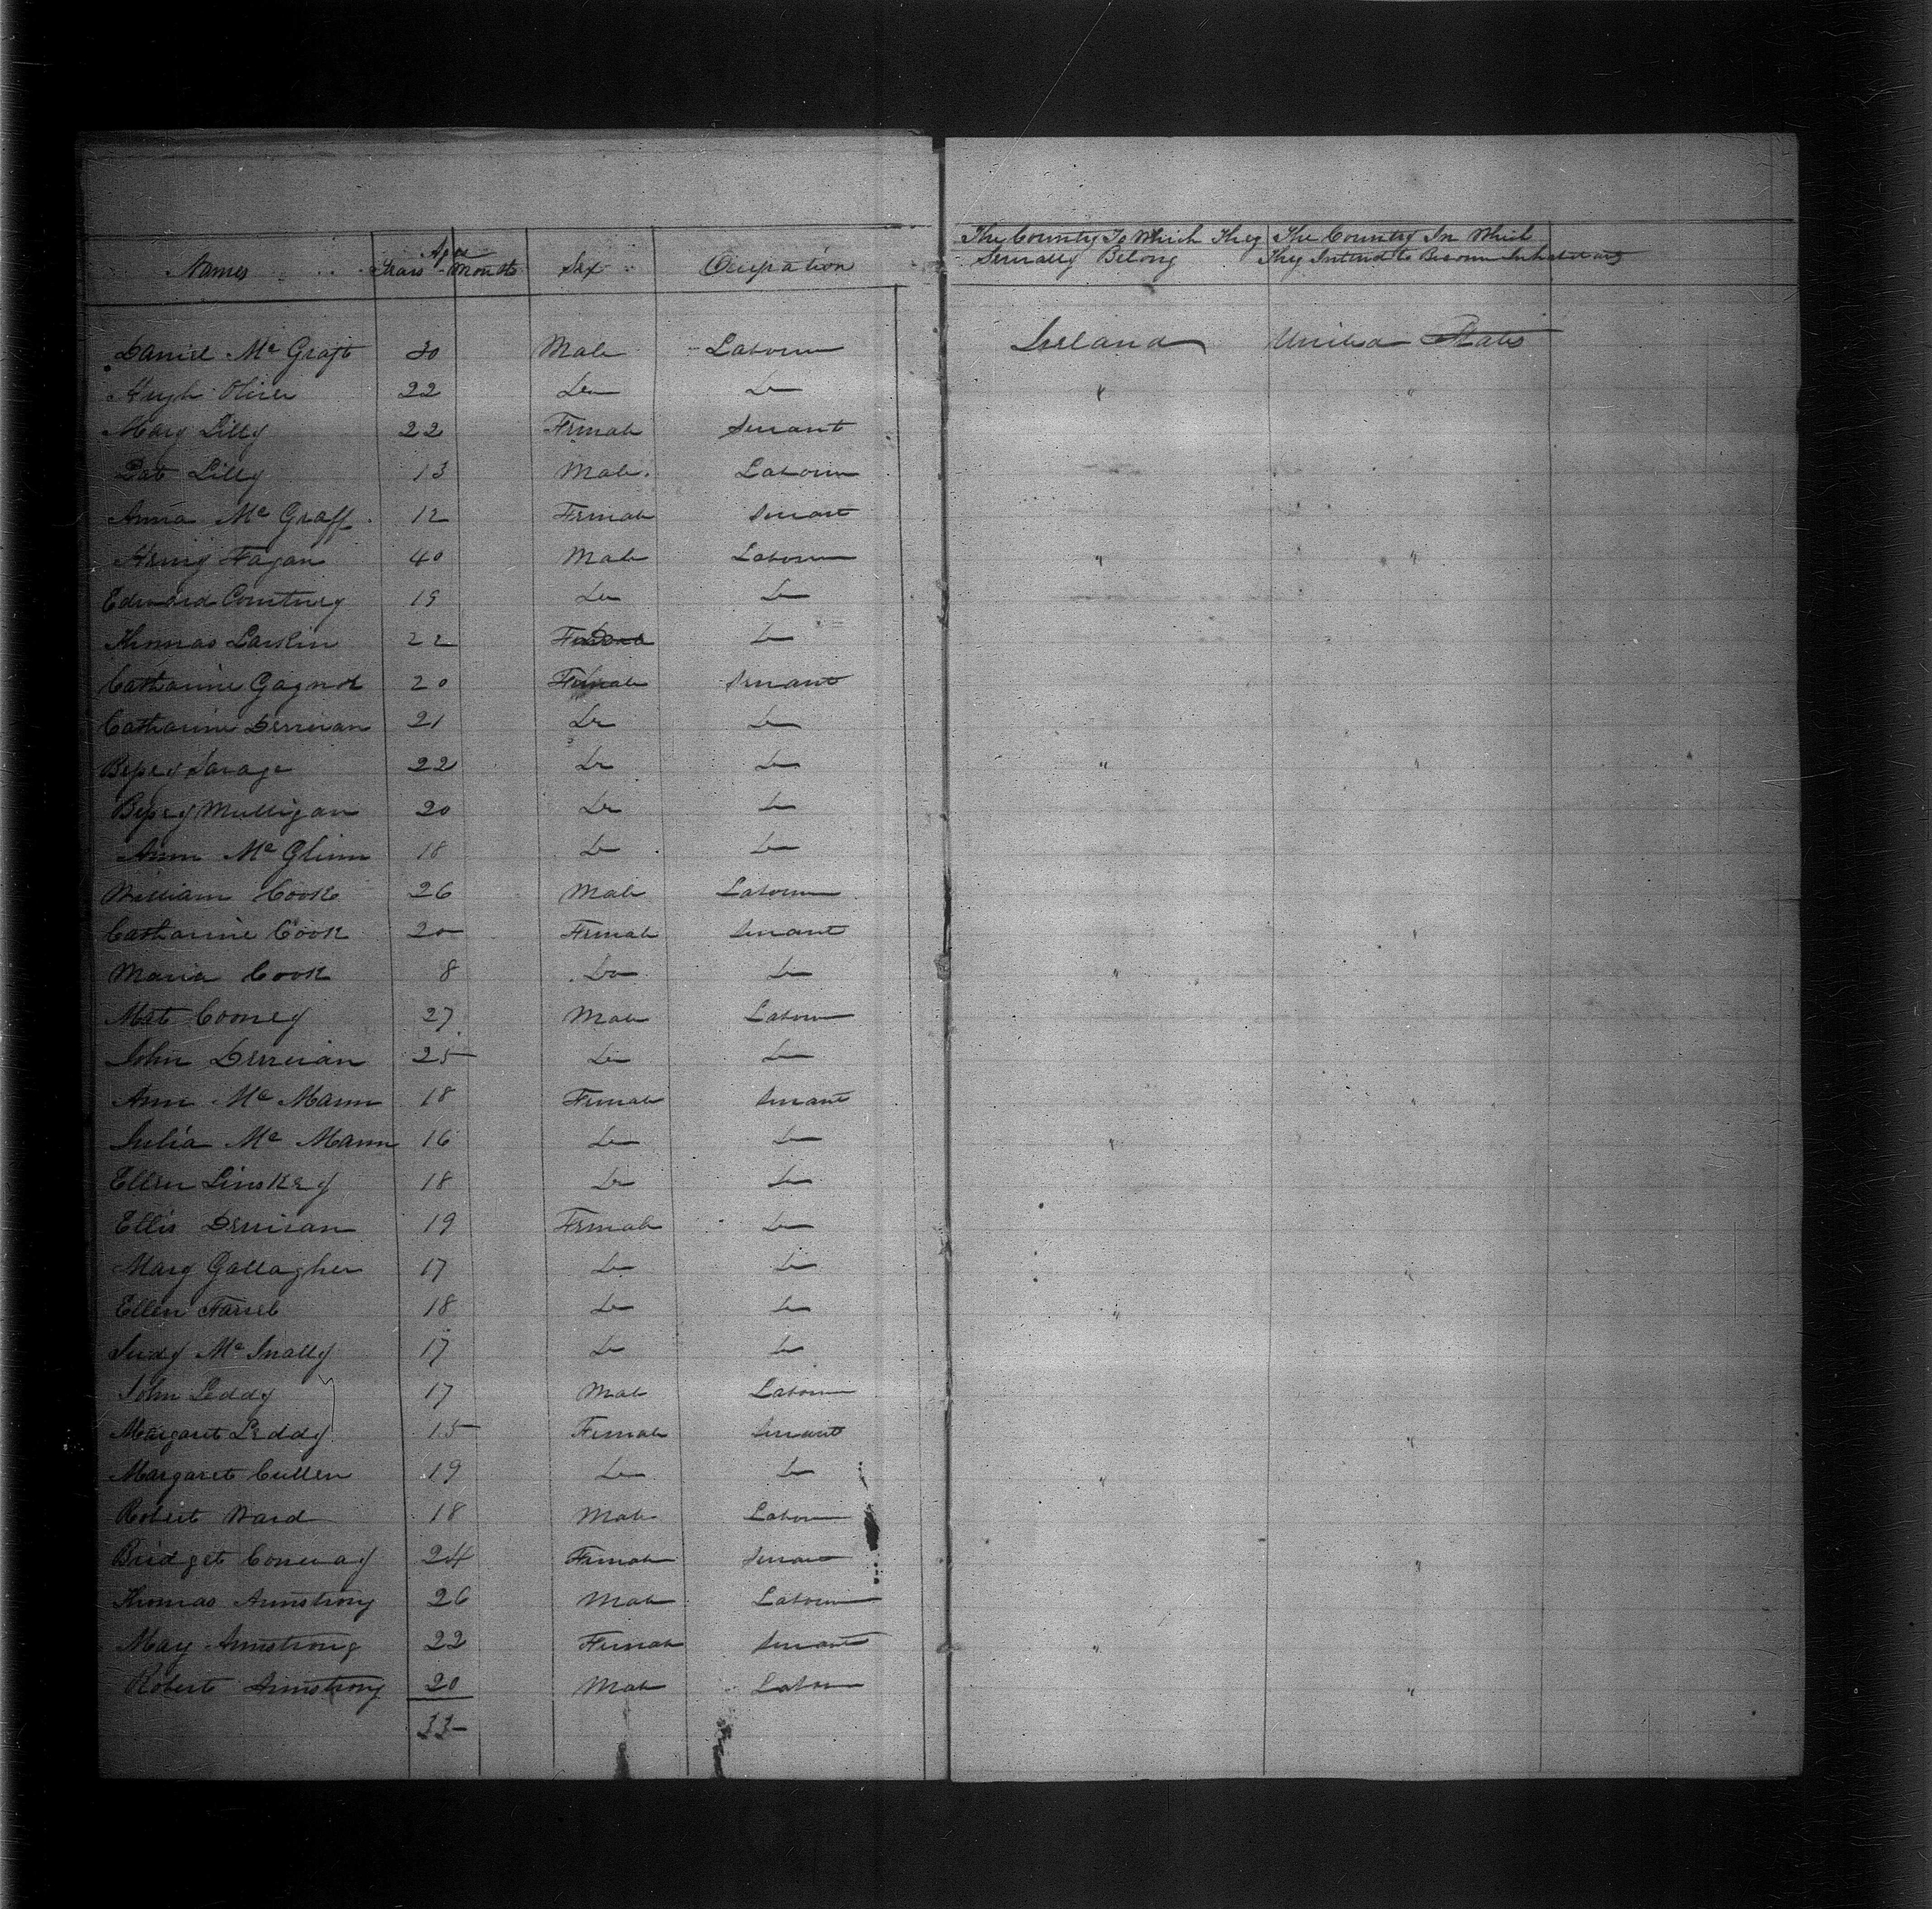 Names Age Years Months Sex Occupation The Country To Which They Severally Belong The Country In Which They Intend to Become Inhabitants
Daniel Mc Graft 30 Male Laborer Ireland United States
Hugh Oliver 22 Do Do " "
Mary Lilly 22 Female Servant
Pat Lilly 13 Male Laborer
Anna Mc Graff 12 Female Servant
Henry Fagan 40 Male Laborer " "
Edward Courtney 19 Do Do
Thomas Larkin 22 Do
Catharine 20 Female Servant
Catharine 21 Do Do
Bessey Savage 22 Do Do " "
Bessey Mulligan 20 Do Do
Ann Mc Glinn 18 Do Do
William Cook 26 Male Laborer
Catharine Cook 20 Female Servant "
Maria Cook 8 Do Do "
Mat Cooney 27 Male Laborer
John 25 Do Do
Ann Mc Mann 18 Female Servant "
Julia Mc Mann 16 Do Do "
Ellen Linskey 18 Do Do
Ellis 19 Female Do
Mary Gallagher 17 Do Do "
Ellen Farrel 18 Do Do "
Judy Mc Inally 17 Do Do
John Leddy 17 Male Laborer
Margaret Leddy 15 Female Servant "
Margaret Cullen 19 Do Do "
Robert Ward 18 Male Laborer
Bridget Conway 24 Female Servant "
Thomas Armstrong 26 Male Laborer
May Armstrong 22 Female Servant "
Robert Armstrong 20 Male Labor "
33